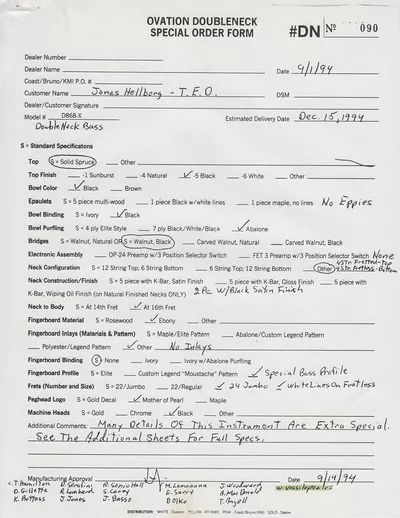 OVATION DOUBLENECK
SPECIAL ORDER FORM
#DN № 090
Dealer Number
Dealer Name Date 9/1/94
Coast/Bruno/KMI P.O. #
Customer Name Jonas Hellborg - T.E.O. DSM
Dealer/Customer Signature
Model # D868-X Estimated Delivery Date Dec. 15, 1994
Double Neck Bass
S = Standard Specificatons
Top S = Solid Spruce Other
Top Finish -1 Sunburst -4 Natural ✓ -5 Black -6 White Other
Bowl Color ✓ Black Brown
Epaulets S = 5 piece multi-wood 1 piece Black w/white lines 1 piece maple, no lines No Eppies
Bowl Binding S = Ivory ✓ Black
Bowl Purfling S = 4 ply Elite Style 7 ply Black/White/Black ✓ Abalone
Bridges S = Walnut, Natural OR S = Walnut, Black Carved Walnut, Natural Carved Walnut, Black
Electronic Assembly OP-24 Preamp w/3 Position Selector Switch FET 3 Preamp w/3 Position Selector Switch None
Neck Configuration S = 12 String Top; 6 String Bottom 6 String Top; 12 String Bottom Other 4 Str. Fretted-Top
4 Str. Fretless-Bottom
Neck Construction/Finish S = 5 piece with K-Bar, Satin Finish 5 piece with K-Bar, Gloss Finish 5 piece with
K-Bar, Wiping Oil Finish (on Natural Finished Necks ONLY) 2 Pc W/Black Satin Finish
Neck to Body S = At 14th Fret ✓ At 16th Fret
Fingerboard Material S = Rosewood ✓ Ebony Other
Fingerboard Inlays (Materials & Pattern) S = Maple/Elite Pattern Abalone/Custom Legend Pattern
Polyester/Legend Pattern ✓ Other No Inlays
Fingerboard Binding S = None Ivory Ivory w/Abalone Purfling
Fingerboard Profile S = Elite Custom Legend "Moustache" Pattern ✓ Special Bass Profile
Frets (Number and Size) S = 22/Jumbo 22/Regular ✓ 24 Jumbo ✓ White Lines On Fretless
Peghead Logo S = Gold Decal ✓ Mother of Pearl Maple
Machine Heads S = Gold Chrome ✓ Black Other
Additional Comments: Many Details Of This Instrument Are Extra Special.
See The Additional Sheets For Full Specs.
Manufacturing Approval Date 9/14/94
C. T. Hamilton
D. Gillette R. Lombard S. Carey E. Savoy A. MacDonald
J. Jones J. Basso T.
DISTRIBUTION: WHITE YELLOW PINK - Coast/Bruno/KMI GOLD - Dealer